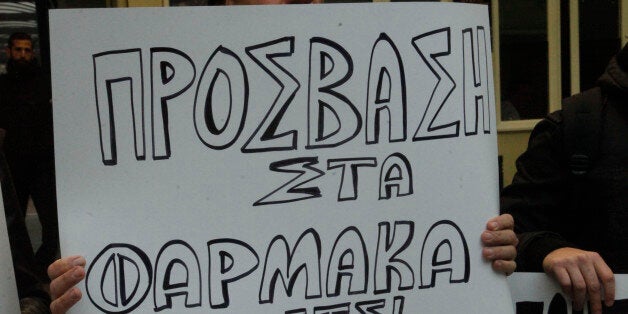 ΠΡΟΣΒΑΣΗ
ΣΤΑ
ΦΑΡΜΑΚΑ